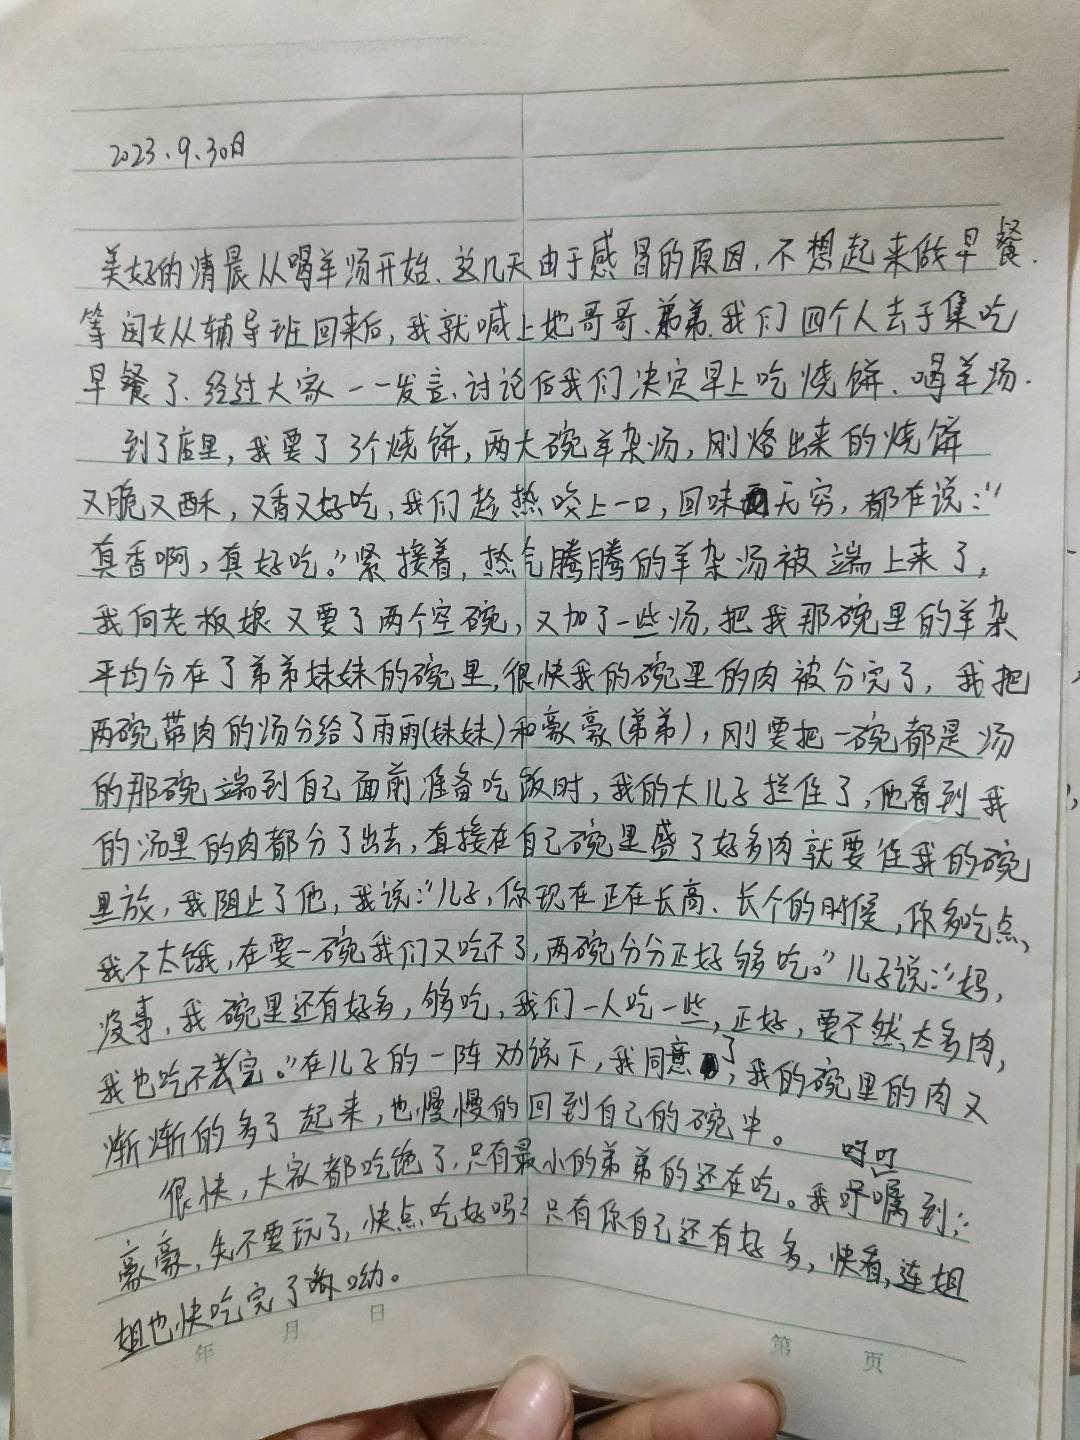 2023.9.30日
美好的清晨从喝羊汤开始.这几天由于感冒的原因,不想起来做早餐.
等闺女从辅导班回来后,我就喊上她哥哥、弟弟.我们四个人去于集吃
早餐了.经过大家一一发言、讨论后我们决定早上吃烧饼、喝羊汤.
到了店里,我要了3个烧饼,两大碗羊杂汤,刚烙出来的烧饼
又脆又酥,又香又好吃,我们趁热咬上一口,回味无穷,都在说:"
真香啊,真好吃。"紧接着,热气腾腾的羊杂汤被端上来了,
我向老板娘又要了两个空碗,又加了一些汤,把我那碗里的羊杂
平均分在了弟弟妹妹的碗里,很快我的碗里的肉被分完了,我把
两碗带肉的汤分给了雨雨(妹妹)和豪豪(弟弟),刚要把一碗都是汤
的那碗端到自己面前准备吃饭时,我的大儿子拦住了,他看到我
的汤里的肉都分了出去,直接在自己碗里盛了好多肉就要往我的碗
里放,我阻止了他,我说:"儿子,你现在正在长高、长个的时候,你多吃点,
我不太饿,在要一碗我们又吃不了,两碗分分正好够吃。"儿子说:"妈,
没事,我碗里还有好多,够吃,我们一人吃一些,正好,要不然,太多肉,
我也吃不完。"在儿子的一阵劝说下,我同意了,我的碗里的肉又
渐渐的多了起来,也慢慢的回到自己的碗中。
很快,大家都吃饱了,只有最小的弟弟的还在吃。我叮嘱到:
豪豪,先不要玩了,快点吃好吗?只有你自己还有好多,快看,连姐
姐也快吃完了呦。
年 月 日 第 页